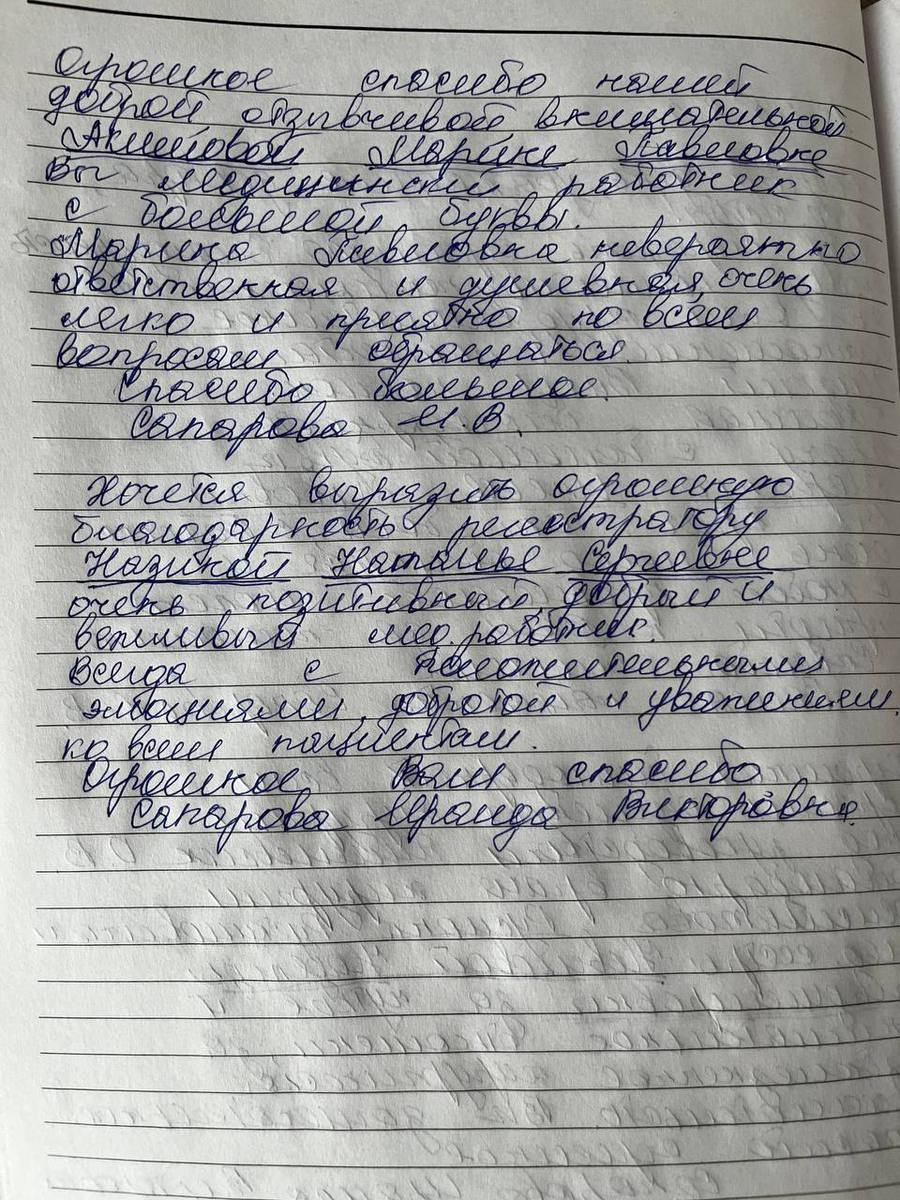 Огромное спасибо нашей
доброй отзывчивой внимательной
Акимовой Марине Павловне
Вы медицинский работник
с большой буквы.
Марина Павловна невероятно
ответственная и душевная, очень
легко и приятно по всем
вопросам обращаться
Спасибо большое.
Сапарова И.В.
Хочется выразить огромную
благодарность регистратору
Назиной Наталье Сергеевне
очень позитивный, добрый и
вежливый мед. работник.
Всегда с положительными
эмоциями, добротой и уважением
ко всем пациентам.
Огромное Вам спасибо
Сапарова Ираида Викторовна.